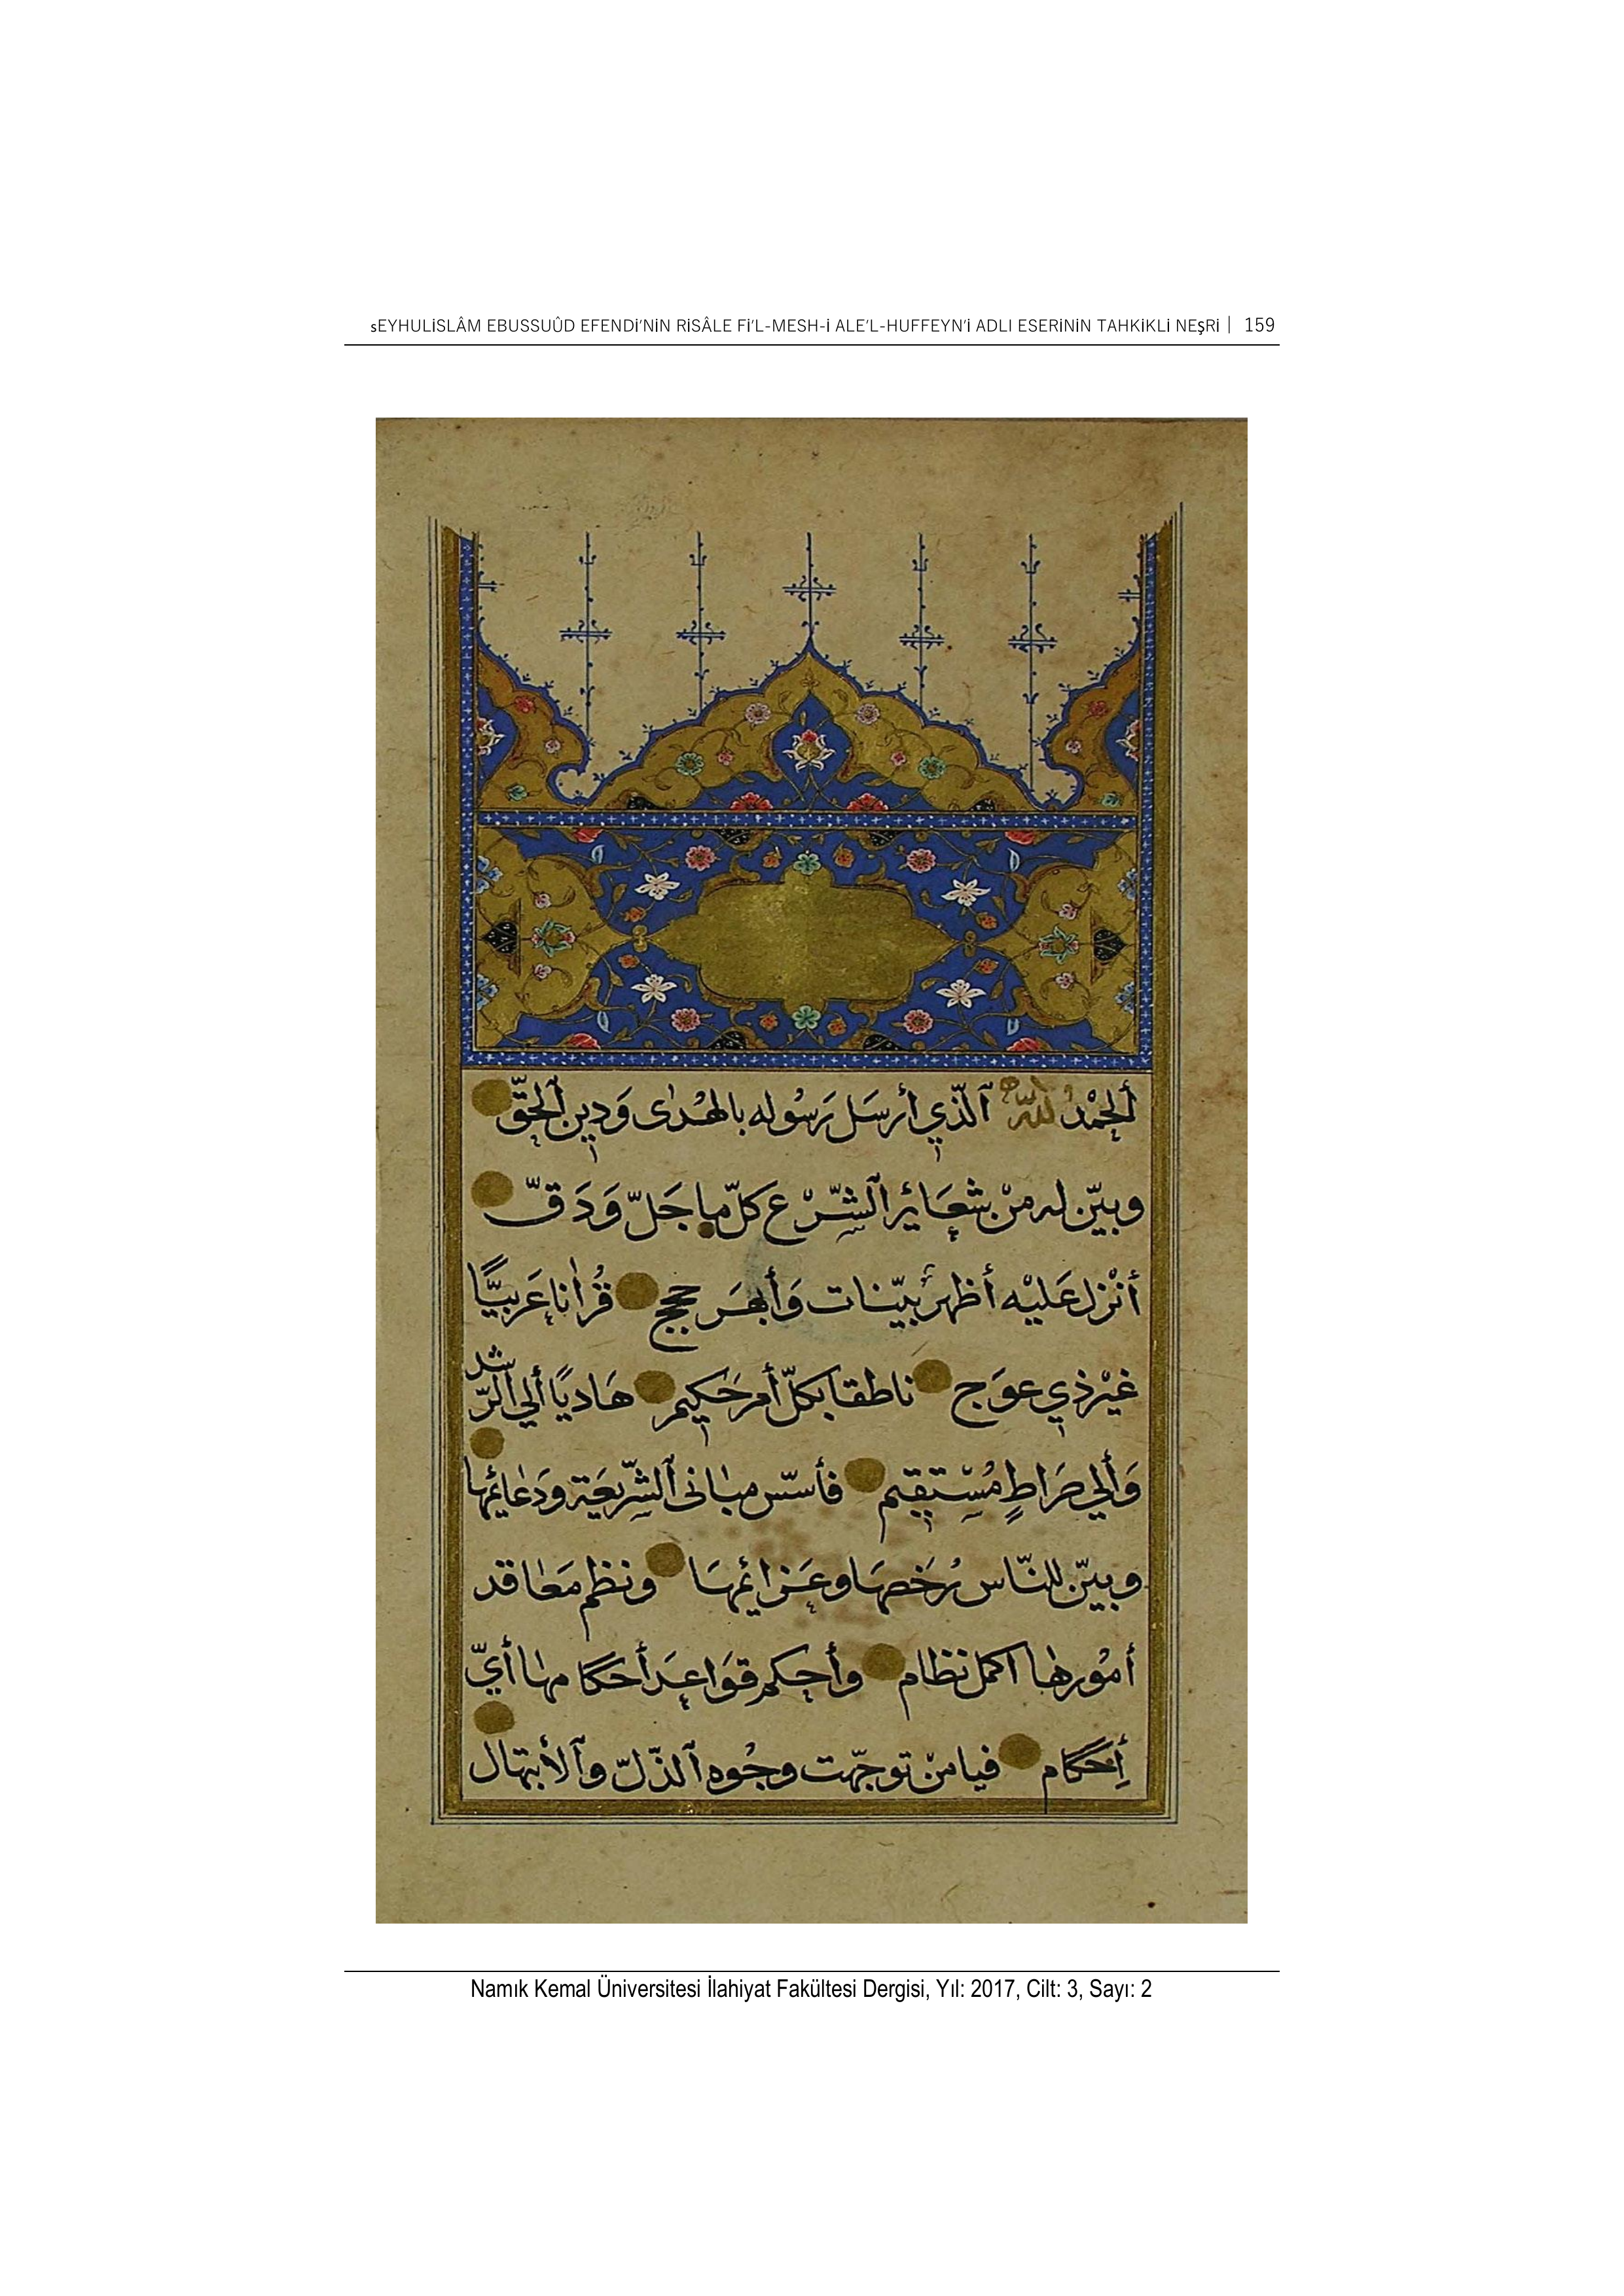 sEYHULİSLÂM EBUSSUÛD EFENDİ'NİN RİSÂLE Fİ'L-MESH-İ ALE'L-HUFFEYN'İ ADLI ESERİNİN TAHKİKLİ NEŞRİ | 159
ألحمْدُ لله ٱلّذي أرسَل رَسُوله بالهْدٰى وَدين ٱلحَقّ
وبيّن له منْ شعَائر ٱلشّرْع كلّ ما جَلّ وَدَقّ
أنْزل عَليْه أظهر بيّنات وَأبهَر حجج قُرأٰنا عَربيًّا
غيْر ذي عوَج ناطقا بكلّ أمر حَكيم هَاديًا ألي ٱلرّشد
وَألي صَراطٍ مُسْتقيم فأسّس مبٰاني ٱلشّريعَة ودَعٰائمها
وبيّن للنّاس رُخصهَا وعَزائمهَا ونظم مَعٰاقد
أمُورهٰا اكمل نظام وأحكم قوَاعدَ أحكامهٰا أيّ
إحكام فيا منْ توجّهت وجُوه ٱلذّلّ وٱلأبتهال
Namık Kemal Üniversitesi İlahiyat Fakültesi Dergisi, Yıl: 2017, Cilt: 3, Sayı: 2